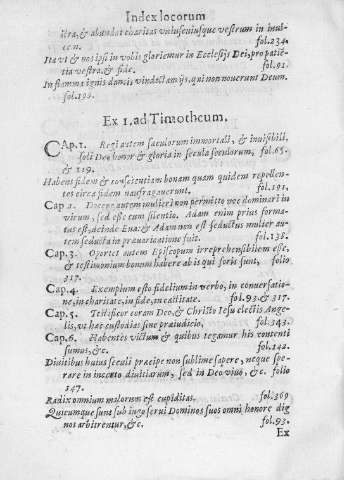 Index locorum
stra, & abundat charitas vniuscuiusque vestrum in inuicem. fol.234.
Ita vt & nos ipsi in vobis gloriemur in Ecclesijs Dei, pro patientia vestra, & fide. fol.91.
In flamma ignis dantis vindictam ijs, qui non nouerunt Deum.
fol.199.
Ex 1. ad Timotheum.
CAp.1. Regi autem sæculorum immortali, & inuisibili,
soli Deo honor & gloria in secula seculorum, fol.65.
& 219.
Habens fidem & conscientiam bonam quam quidem repellentes circa fidem naufragauerunt. fol.191.
Cap 2. Docere autem mulieri non permitto nec dominari in
virum, sed esse cum silentio. Adam enim prius formatus est, deinde Eua: & Adam non est seductus mulier autem seducta in præuaricatione fuit. fol.138.
Cap.3. Oportet autem Episcopum irreprehensibilem esse,
& testimonium bonum habere ab is qui foris sunt, folio
317.
Cap.4. Exemplum esto fidelium in verbo, in conuersatione, in charitate, in fide, in castitate. fol.93. & 317.
Cap.5. Testificor coram Deo, & Christo Iesu electis Angelis, vt hæc custodias sine præiudicio, fol.343.
Cap.6. Habentes victum & quibus tegamur his contenti
sumus, &c. fol.142.
Diuitibus huius seculi præcipe non sublime sapere, neque sperare in incerto diuitiarum, sed in Deo viuo, &c. folio
347.
Radix omnium malorum est cupiditas. fol.369
Quicumque sunt sub iugo serui Dominos suos omni honore dignos arbitrentur, &c. fol.93.
Ex